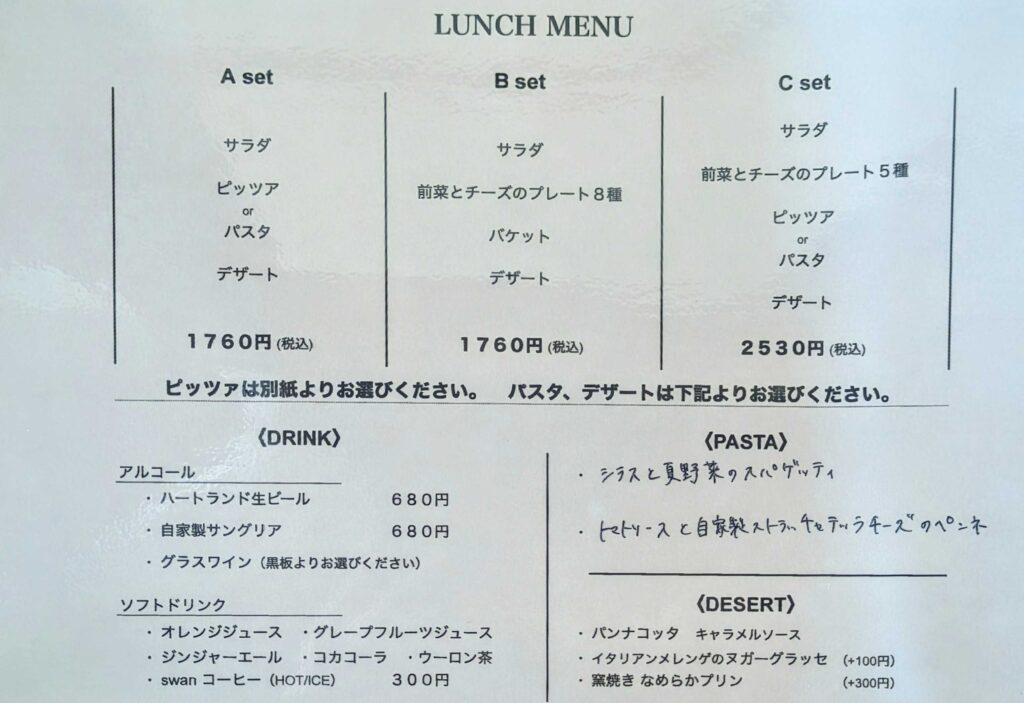 LUNCH MENU
A set
サラダ
ピッツア
or
パスタ
デザート
1760円 (税込)
B set
サラダ
前菜とチーズのプレート8種
バケット
デザート
1760円 (税込)
C set
サラダ
前菜とチーズのプレート5種
ピッツア
or
パスタ
デザート
2530円 (税込)
ピッツァは別紙よりお選びください。 パスタ、デザートは下記よりお選びください。
《DRINK》
アルコール
・ハートランド生ビール 680円
・自家製サングリア 680円
・グラスワイン（黒板よりお選びください）
ソフトドリンク
・オレンジジュース ・グレープフルーツジュース
・ジンジャーエール ・コカコーラ ・ウーロン茶
・swan コーヒー（HOT/ICE） 300円
《PASTA》
・シラスと夏野菜のスパゲッティ
・トマトソースと自家製ストラッチャテッラチーズのペンネ
《DESERT》
・パンナコッタ キャラメルソース
・イタリアンメレンゲのヌガーグラッセ （+100円）
・窯焼き なめらかプリン （+300円）